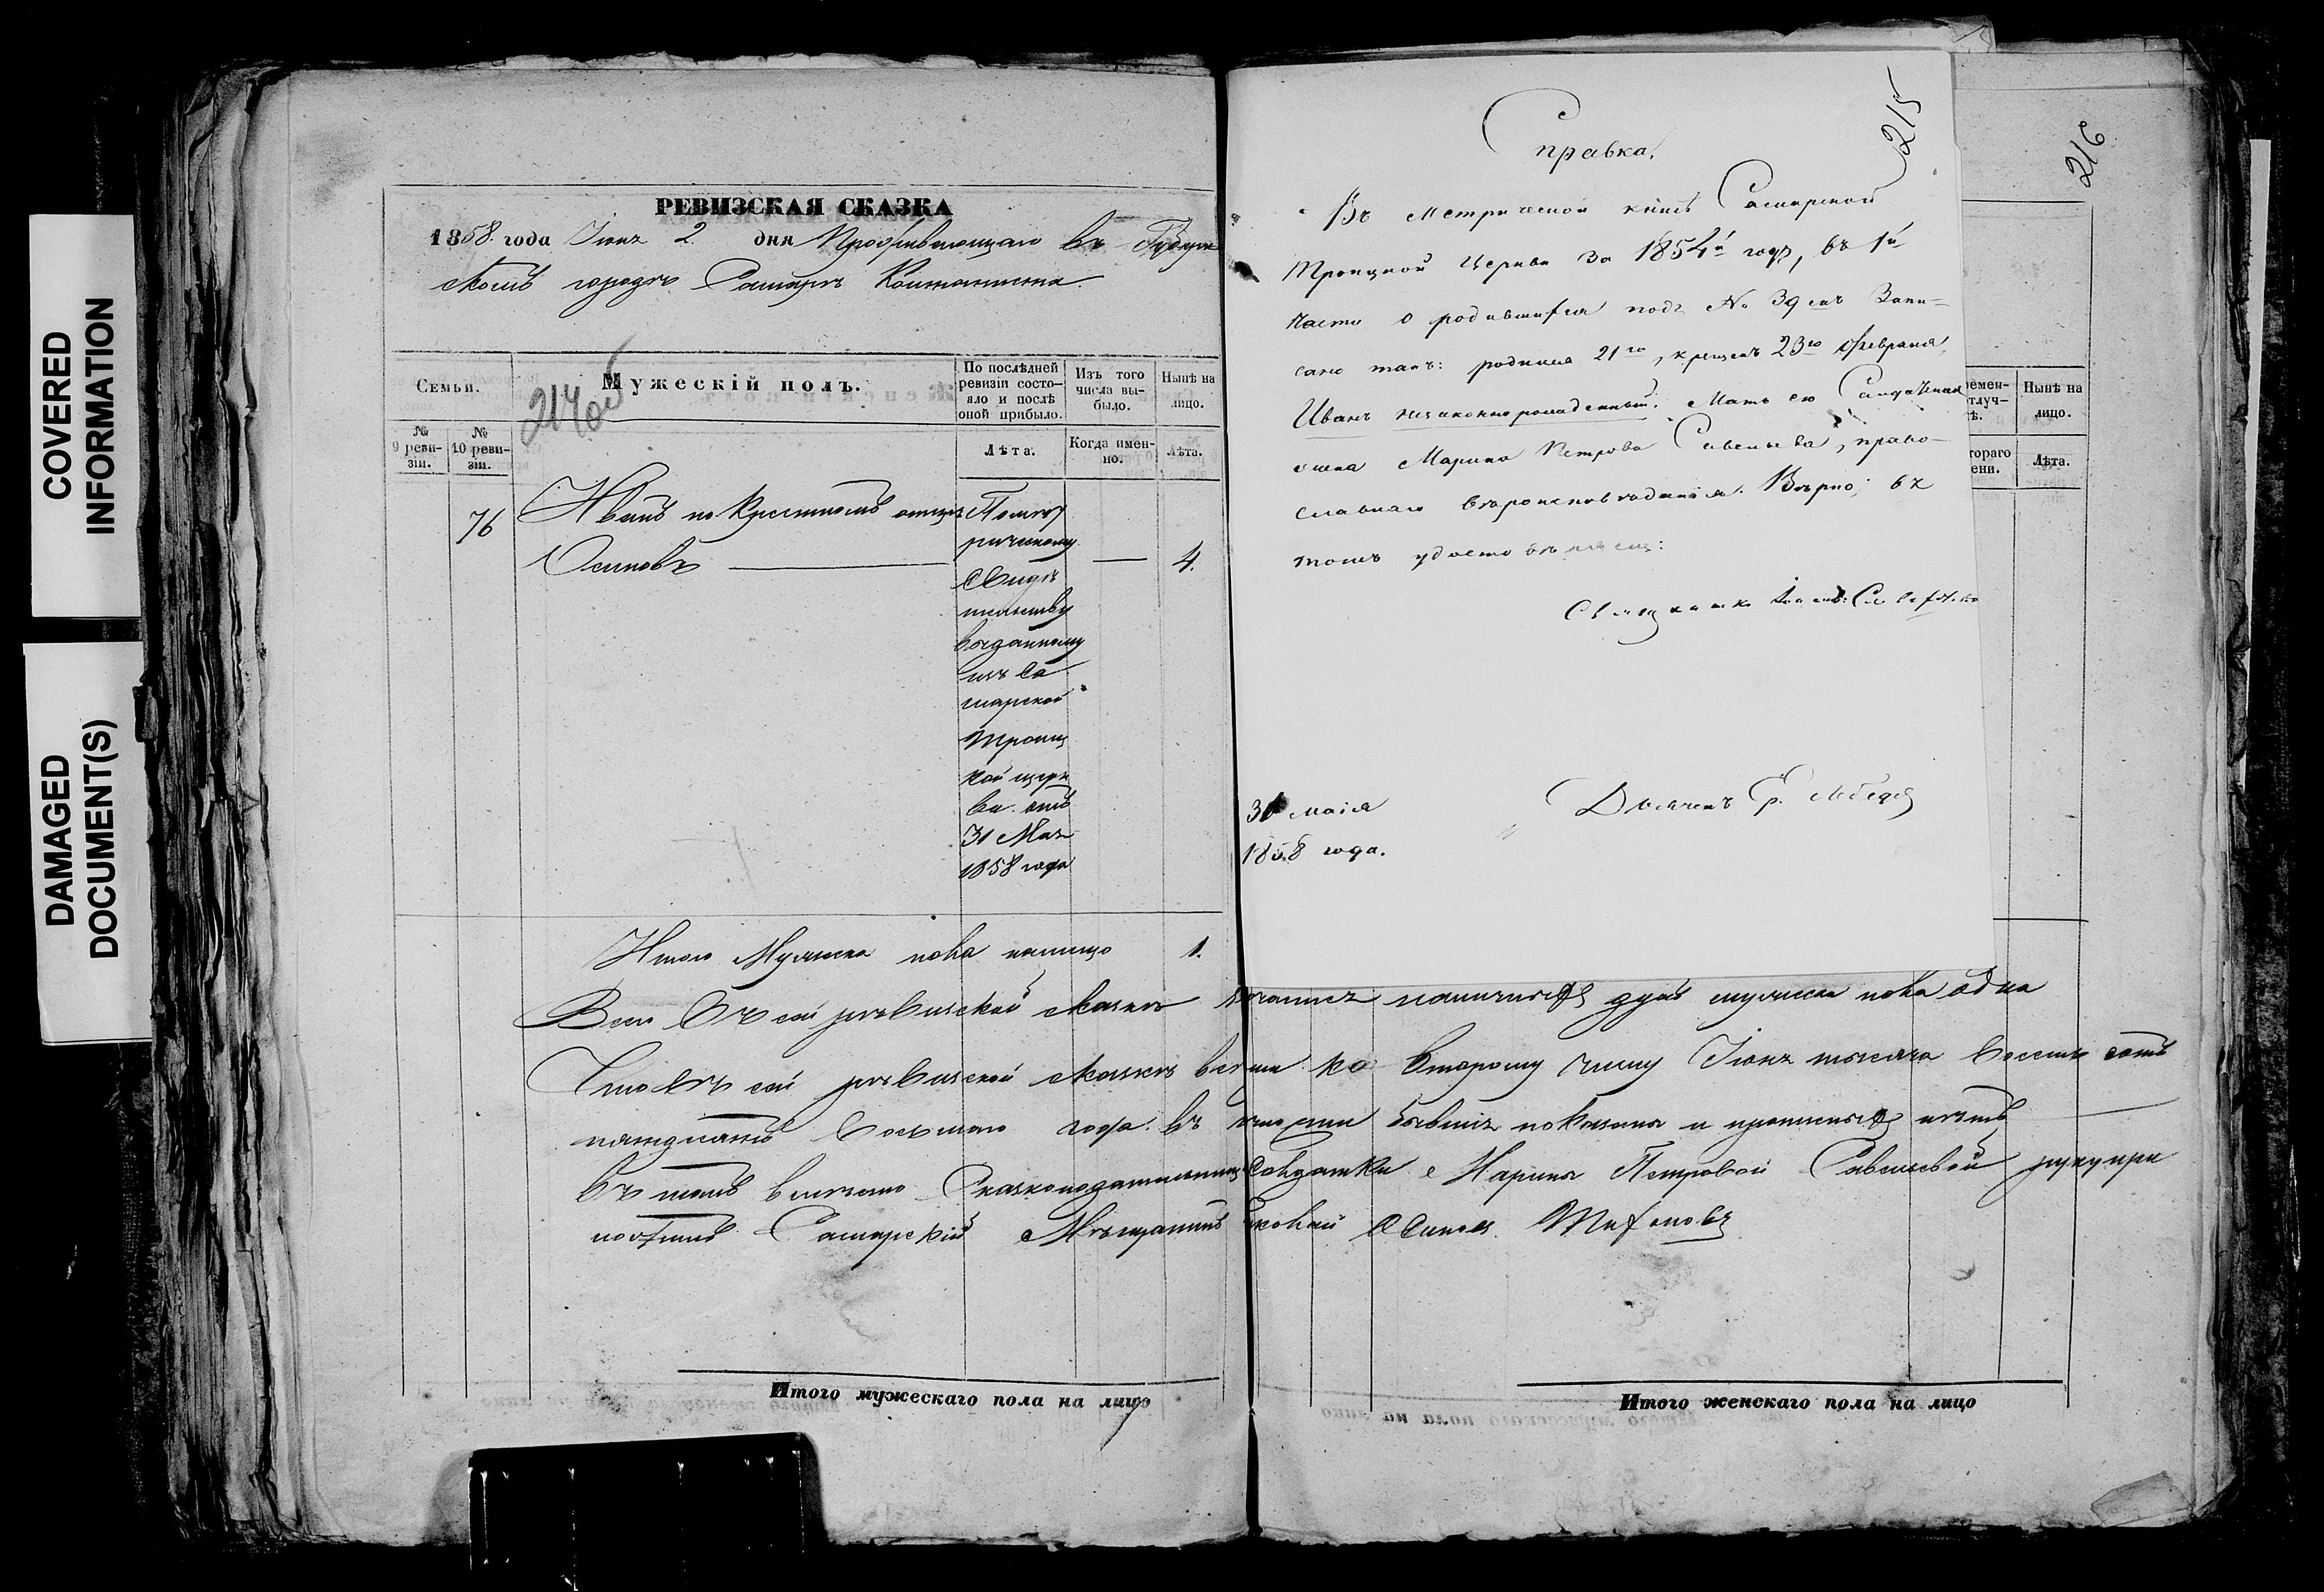 COVERED
INFORMATION
DAMAGED
DOCUMENT(S)
РЕВИЗСКАЯ СКАЗКА
1858. года Іюня 2. дня Проживающаго въ Губерн
скомъ городѣ Самарѣ Кантониста.
Семьи.
Мужескій полъ.
По послѣдней ревизіи состо-яло и послѣ оной прибыло.
Изъ того числа вы-было.
Нынѣ на лицо.
№ 9 реви-зіи.
№ 10 реви-зіи.
Лѣта.
Когда имен-но.
Лѣта.
214 об
76
Иванъ по крестномъ отцѣ
Осиповъ
По метри
ческому
свидѣ
тельству
выданному
изъ Са
марской
Троиц
кой церк
ви отъ
31 Мая
1858 года
4.
Итого Мужеска пола налицо 1.
Всего въ сей ревизской сказкѣ наличныхъ душъ мужеска пола одна
Что въ сей ревизской сказкѣ всѣ ко второму числу Іюня тысяча восемь сотъ
пятьдесятъ восьмаго года въ бывшіе показаны и прописныхъ нѣтъ
въ томъ вмѣсто Сказкоподательницы Солдатки Марины Петровой Савельевой руку при
ложилъ Самарскій Мѣщанинъ Осиповъ Тихоновъ
Итого мужескаго пола на лицо
215
Справка.
Въ Метрической книгѣ Самарской
Троицкой Церкви за 1854й годъ, въ 1й
части о родившихся подъ № 39 мъ Запи-
сано такъ: родился 21го, крещенъ 23го Февраля
Иванъ незаконнорожденный. Мать его Солдатская
жена Марина Петрова Савельева, право-
славнаго вѣроисповѣданія. Вѣрно; въ
томъ удостовѣряемъ:
Священникъ
Дьячекъ
31 маія
1858 года.
216
ремен-
тлуч-
ѣ.
Нынѣ на лицо.
тораго
ени.
Лѣта.
Итого женскаго пола на лицо